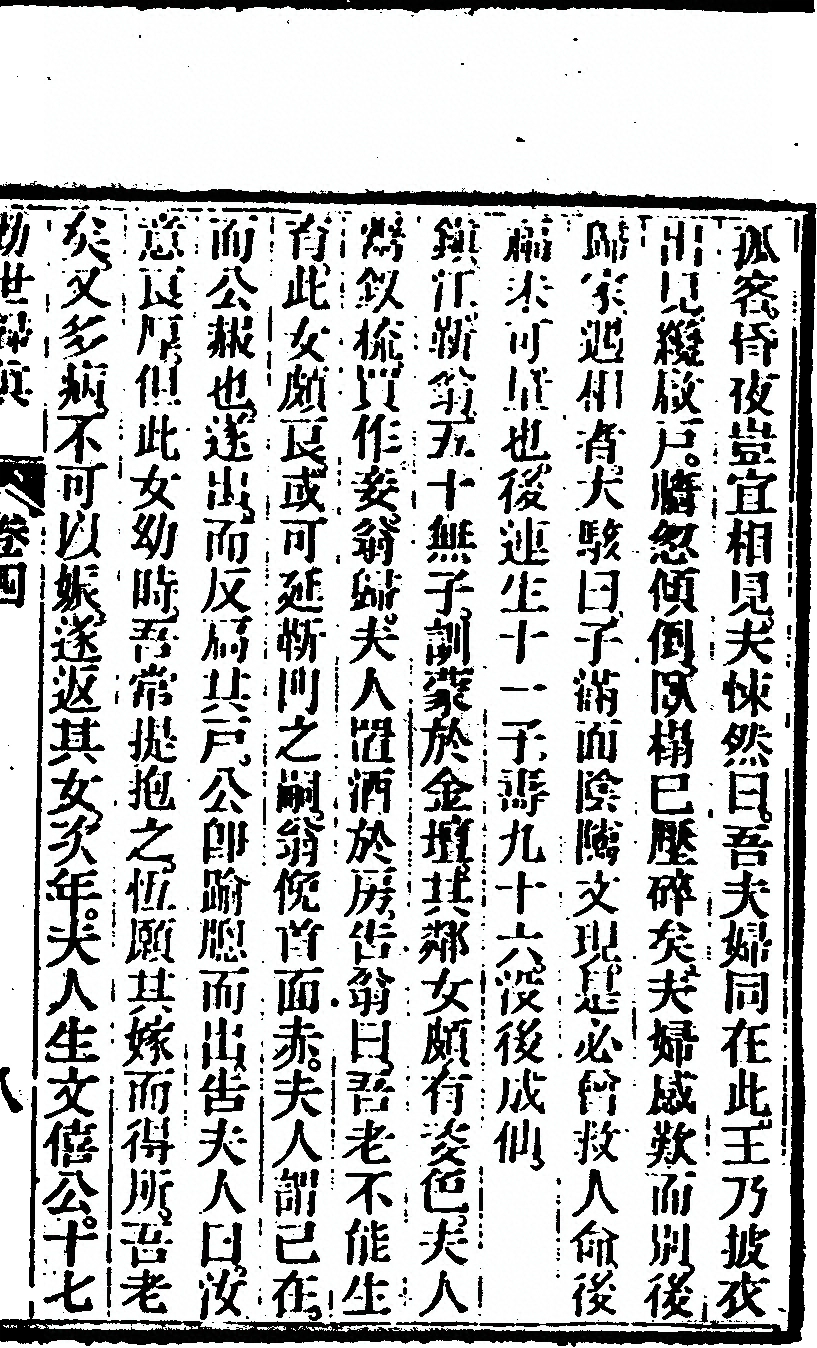 孤客。昏夜豈宜相見。夫悚然曰。吾夫婦同在此。王乃披衣
出見。纔啟戶。牆忽傾倒。臥榻已壓碎矣。夫婦感歎而別。後
歸家。遇相者。大駭曰。子滿面陰隲文現。是必曾救人命。後
福未可量也。後連生十一子。壽九十六。沒後成仙。
鎮江靳翁。五十無子。訓蒙於金壇。其鄰女頗有姿色。夫人
鬻釵梳。買作妾。翁歸。夫人置酒於房。告翁曰。吾老不能生
育。此女頗良。或可延靳門之嗣。翁俛首面赤。夫人謂己在。
而公赧也。遂出。而反扃其戶。公卽踰牕而出。告夫人曰。汝
意良厚。但此女幼時。吾常提抱之。恆願其嫁而得所。吾老
矣。又多病。不可以娠。遂返其女。次年。夫人生文僖公。十七
勸世歸真 卷四 八